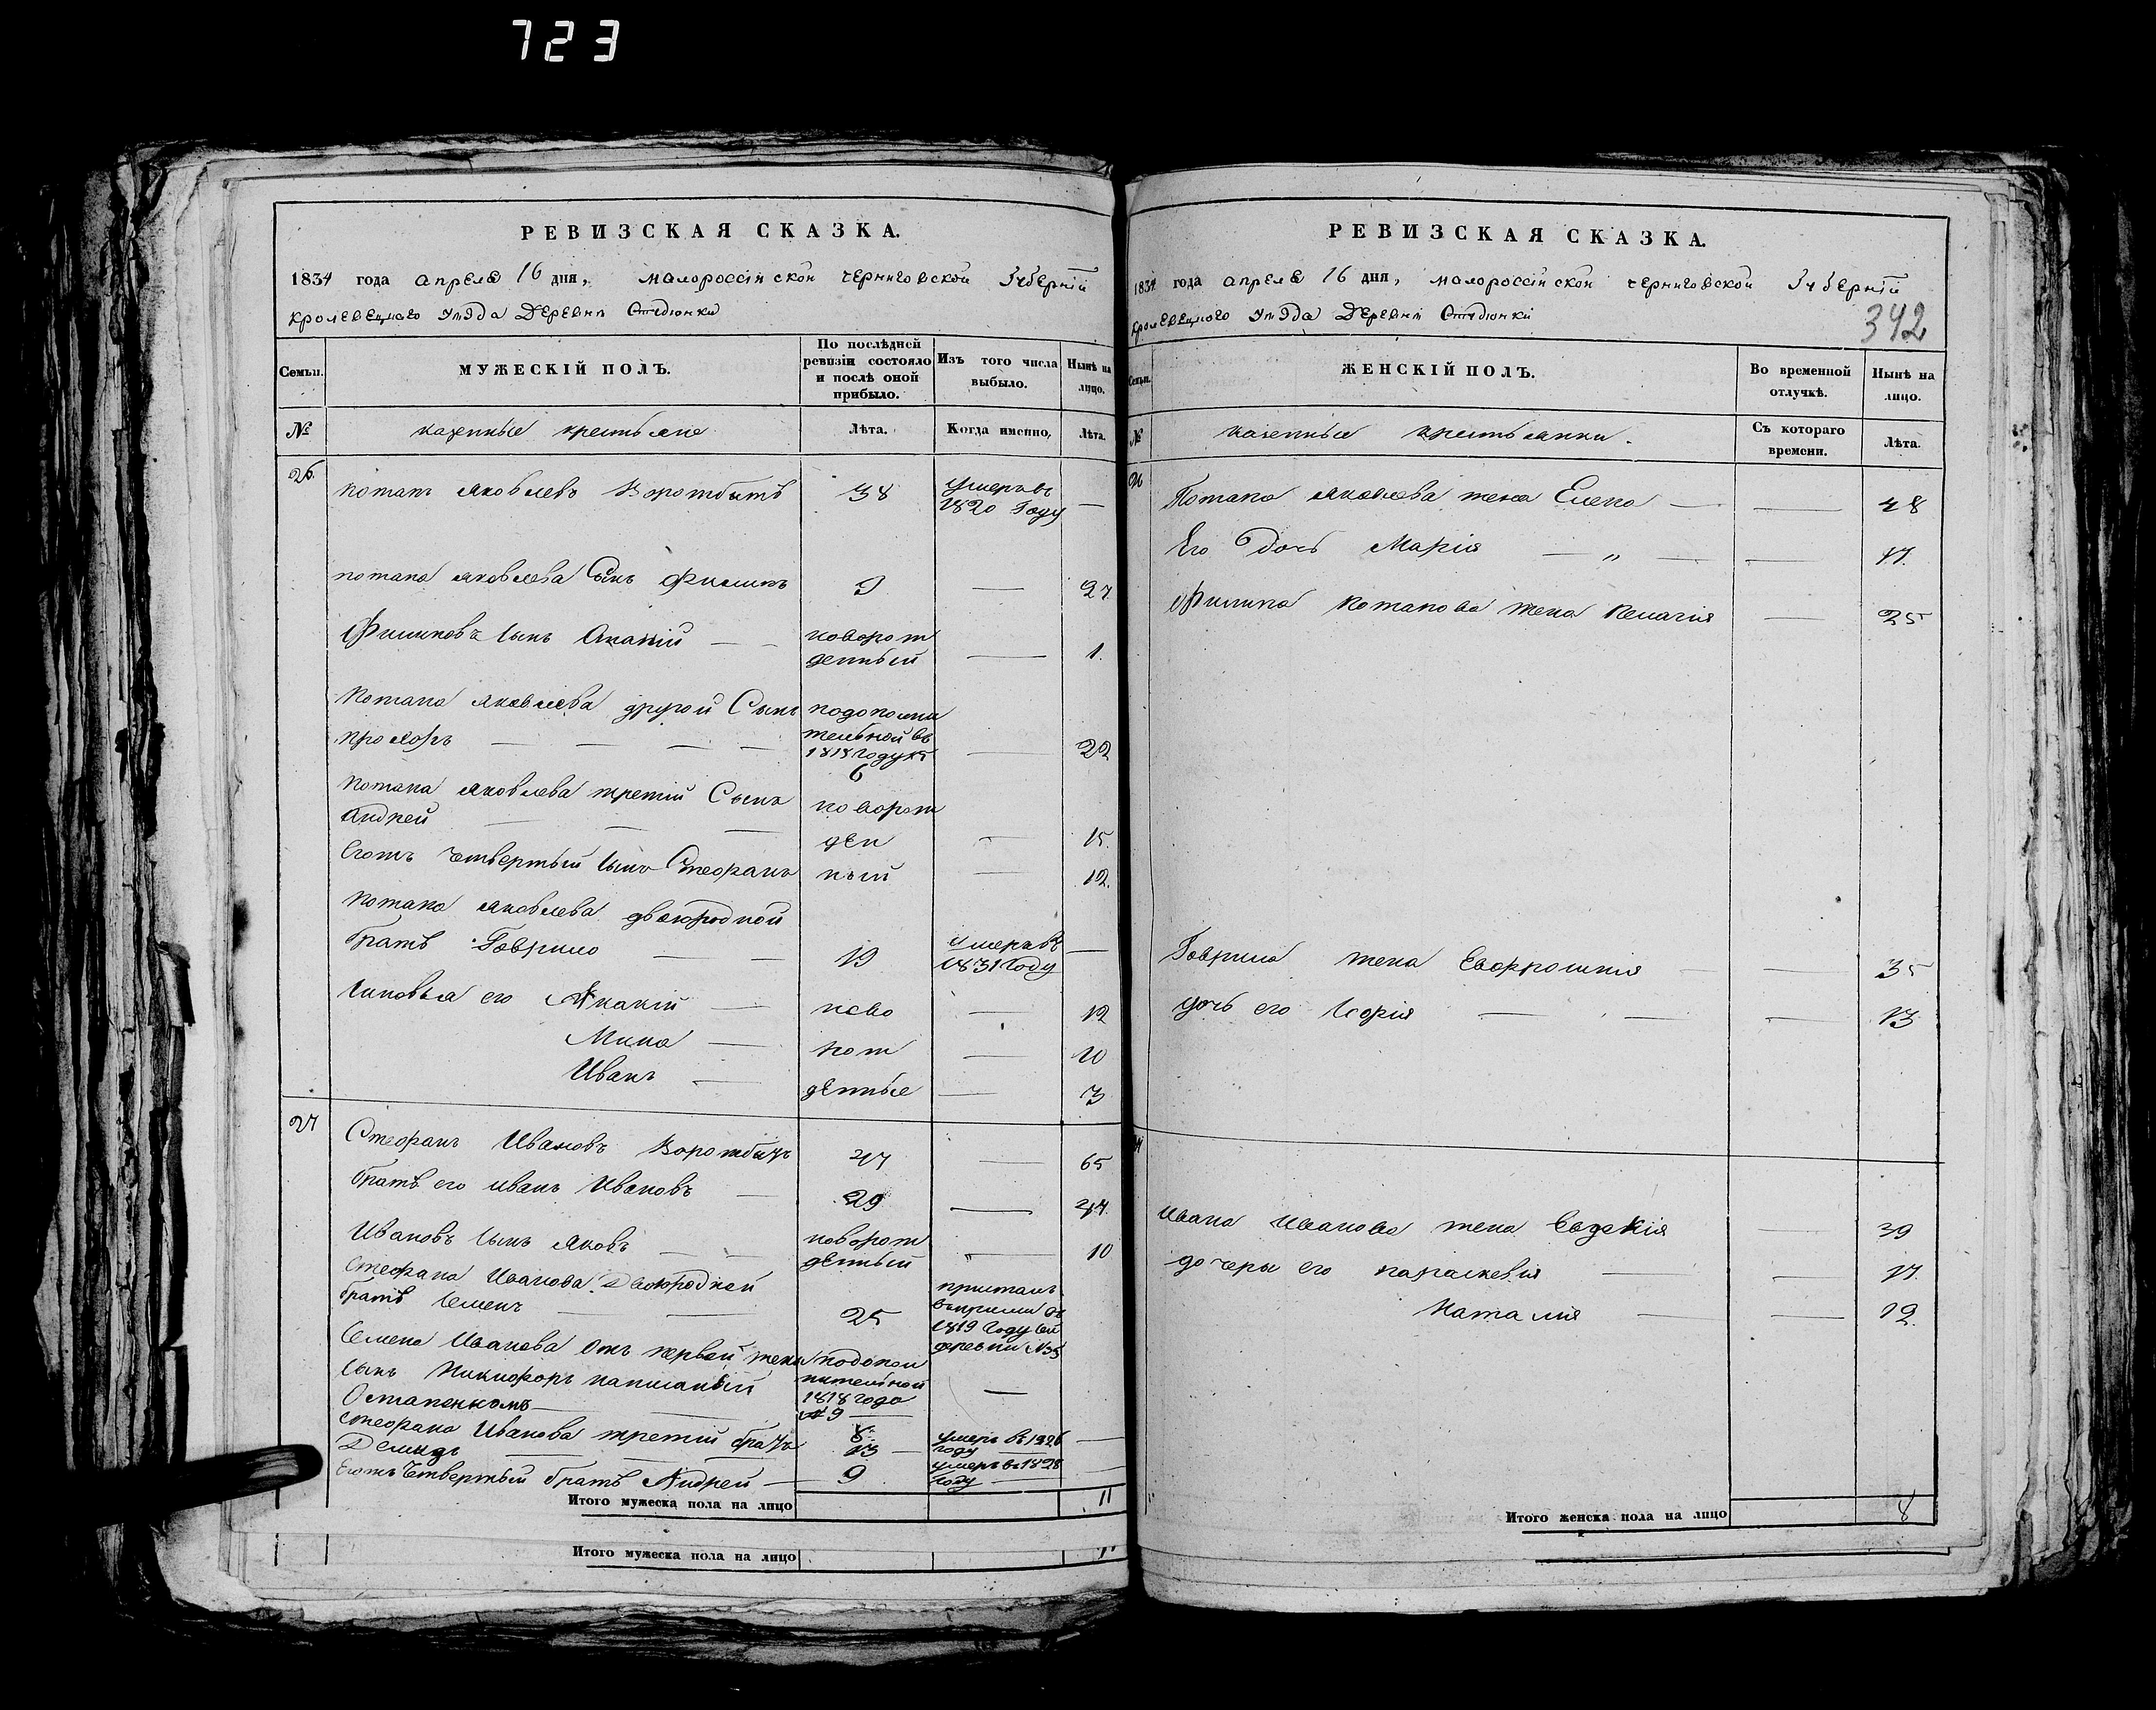 723
РЕВИЗСКАЯ СКАЗКА.
1834 года апреля 16 дня, малороссійской черниговской Губерніи
кролевецкого уезда деревни
Семьи.
МУЖЕСКІЙ ПОЛЪ.
По послѣдней ревизіи состояло и послѣ оной прибыло.
Изъ того числа выбыло.
Нынѣ на лицо.
№
казенные крестьяне
Лѣта.
Когда именно.
Лѣта.
26.
потапъ яковлевъ Воротбитъ 38 умеръ въ 1820 Году —
потапа яковлева Сынъ Филипъ 9 — 27
Филиповъ сынъ Акакій — — новорож денный — 1.
потапа яковлева другой Сынъ
прокофъ — — — — подополни тельной въ 1818 году 6 — 22
потапа яковлева третій Сынъ
андрей — — — новорож ден — 15.
Егожъ четвертый сынъ Стефанъ ный — 12.
потапа яковлева двоюродной
братъ Гаврило — — 19 умеръ въ 1831 Году —
сыновья его Акакій — ново — 12
Мина — рож — 10
Иванъ — денные — 3
27
Стефанъ Ивановъ Воротбитъ 47 — 65
братъ его иванъ Ивановъ — 29 — 47.
Ивановъ сынъ яковъ — — новорож денный — 10
Стефана Иванова двоюродной
братъ Семенъ — — 25 1819 Году деревни №35
Семена Иванова отъ первой жены
сынъ Никифоръ написанный
Остапенкомъ — — 1818 года № 9 —
8.
Стефана Иванова третій братъ
Демидъ — — 13 — умеръ въ 1826 году —
Егожъ четвертый братъ Андрей — 9 умеръ въ 1828 Году —
Итого мужеска пола на лицо 11
Итого мужеска пола на лицо
РЕВИЗСКАЯ СКАЗКА.
1834 года апреля 16 дня, малороссійской черниговской Губерніи
кролевецкого уезда деревни
342
Семьи.
ЖЕНСКІЙ ПОЛЪ.
Во временной отлучкѣ.
Нынѣ на лицо.
№
казенные крестьянки.
Съ котораго времени.
Лѣта.
26
Потапа яковлева жена Елена — — 48
Его дочь Марія — „ — — 17.
Филипа потапова жена пелагия — 25
Гаврила жена Евфросинія — — 35
дочь его Софія — — — 13
Ивана Иванова жена Евдокія — 39
дочери его параскевія — — 17.
Наталия — — 12.
Итого женска пола на лицо 8